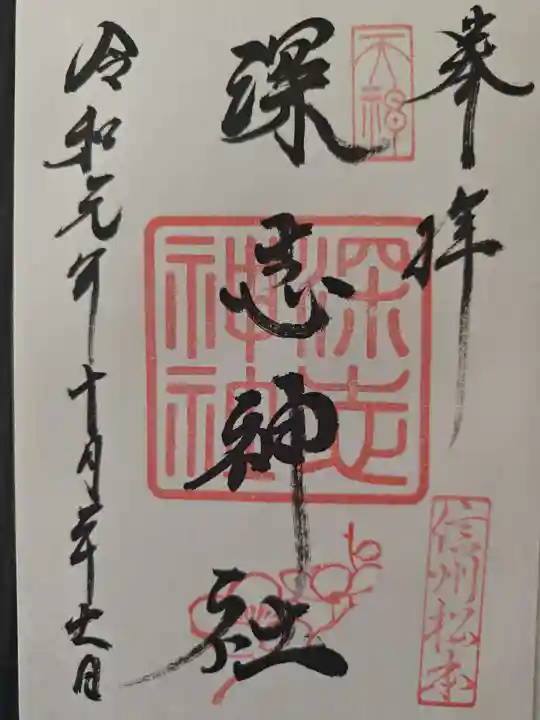 奉拝
天神
深志神社
深志神社
信州松本
令和元年十月廿六日